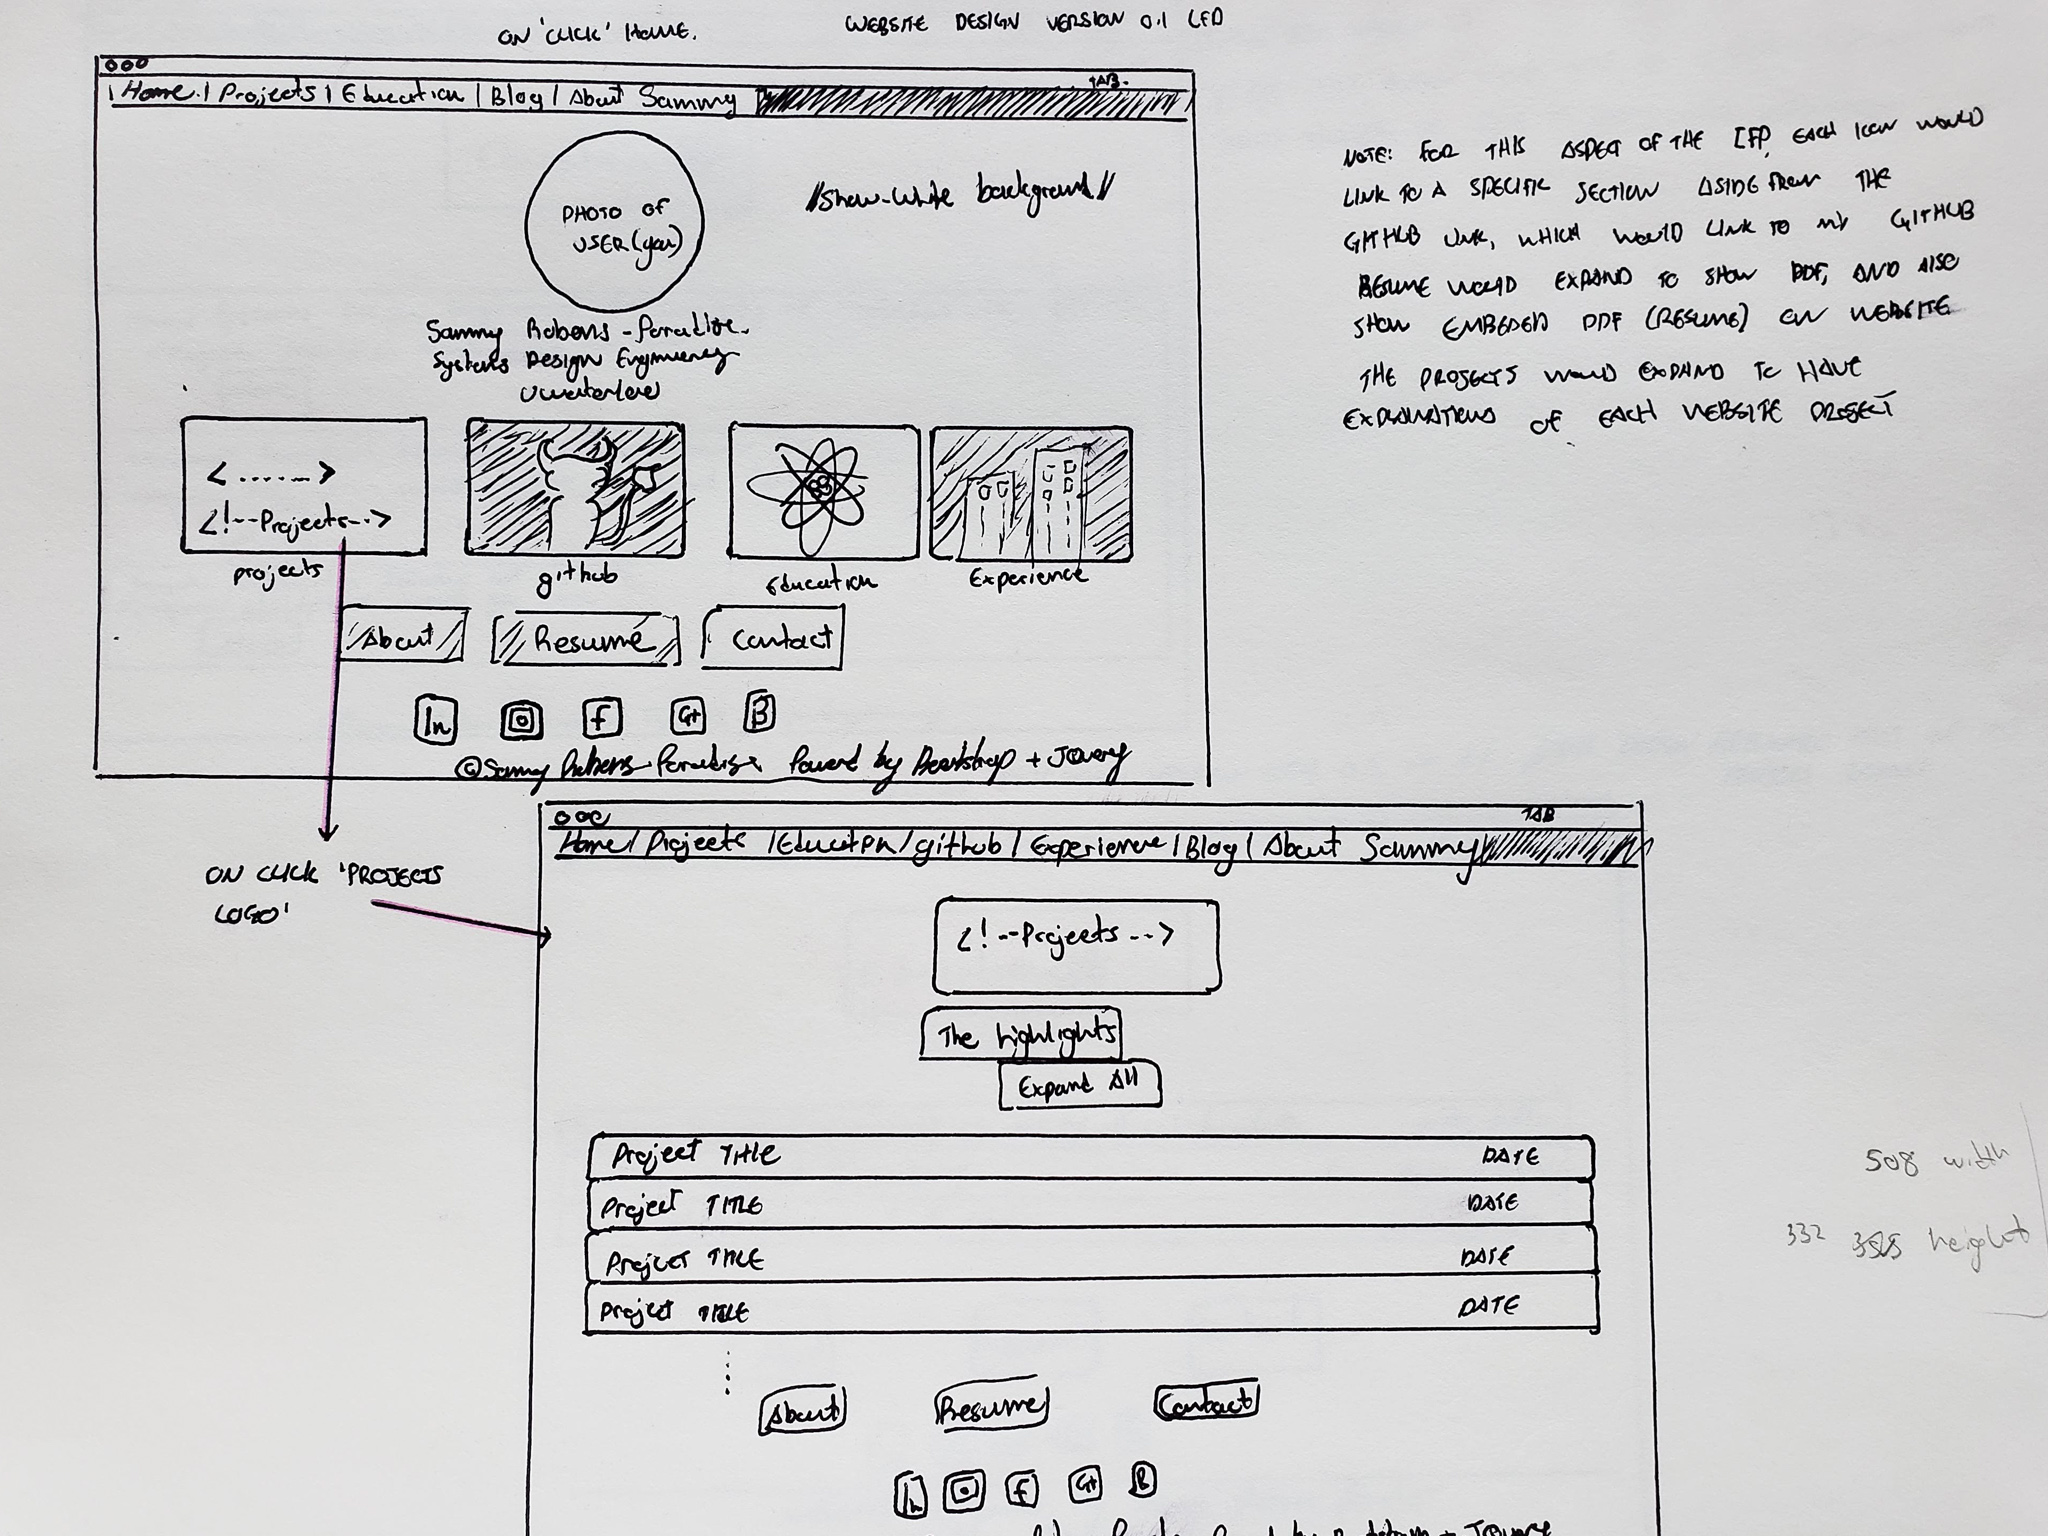 ON 'CLICK' HOME.
WEBSITE DESIGN VERSION 0.1 LFD
TAB.
| Home. | Projects | Education | Blog | About Sammy
PHOTO OF
USER (you)
//Show-White background//
Sammy Robens-Paradise.
Systems Design Engineering
UWaterloo
< ...... >
<!--Projects-->
projects
github
Education
Experience
About
Resumé
Contact
In
f
G+
B
©Sammy Robens-Paradise Powered by Bootstrap + JQuery
NOTE: FOR THIS ASPECT OF THE LFD, EACH ICON WOULD
LINK TO A SPECIFIC SECTION ASIDE FROM THE
GITHUB LINK, WHICH WOULD LINK TO MY GITHUB
RESUME WOULD EXPAND TO SHOW PDF, AND ALSO
SHOW EMBEDED PDF (RESUME) ON WEBSITE
THE PROJECTS WOULD EXPAND TO HAVE
EXPLANATIONS OF EACH WEBSITE PROJECT
ON CLICK 'PROJECTS
LOGO'
TAB
Home / Projects / Education / github | Experience | Blog | About Sammy
<!--Projects-->
The highlights
Expand All
Project TITLE DATE
Project TITLE DATE
Project TITLE DATE
Project TITLE DATE
About
Resume
Contact
In
f
G+
B
+ JQuery
508 width
332 355 height